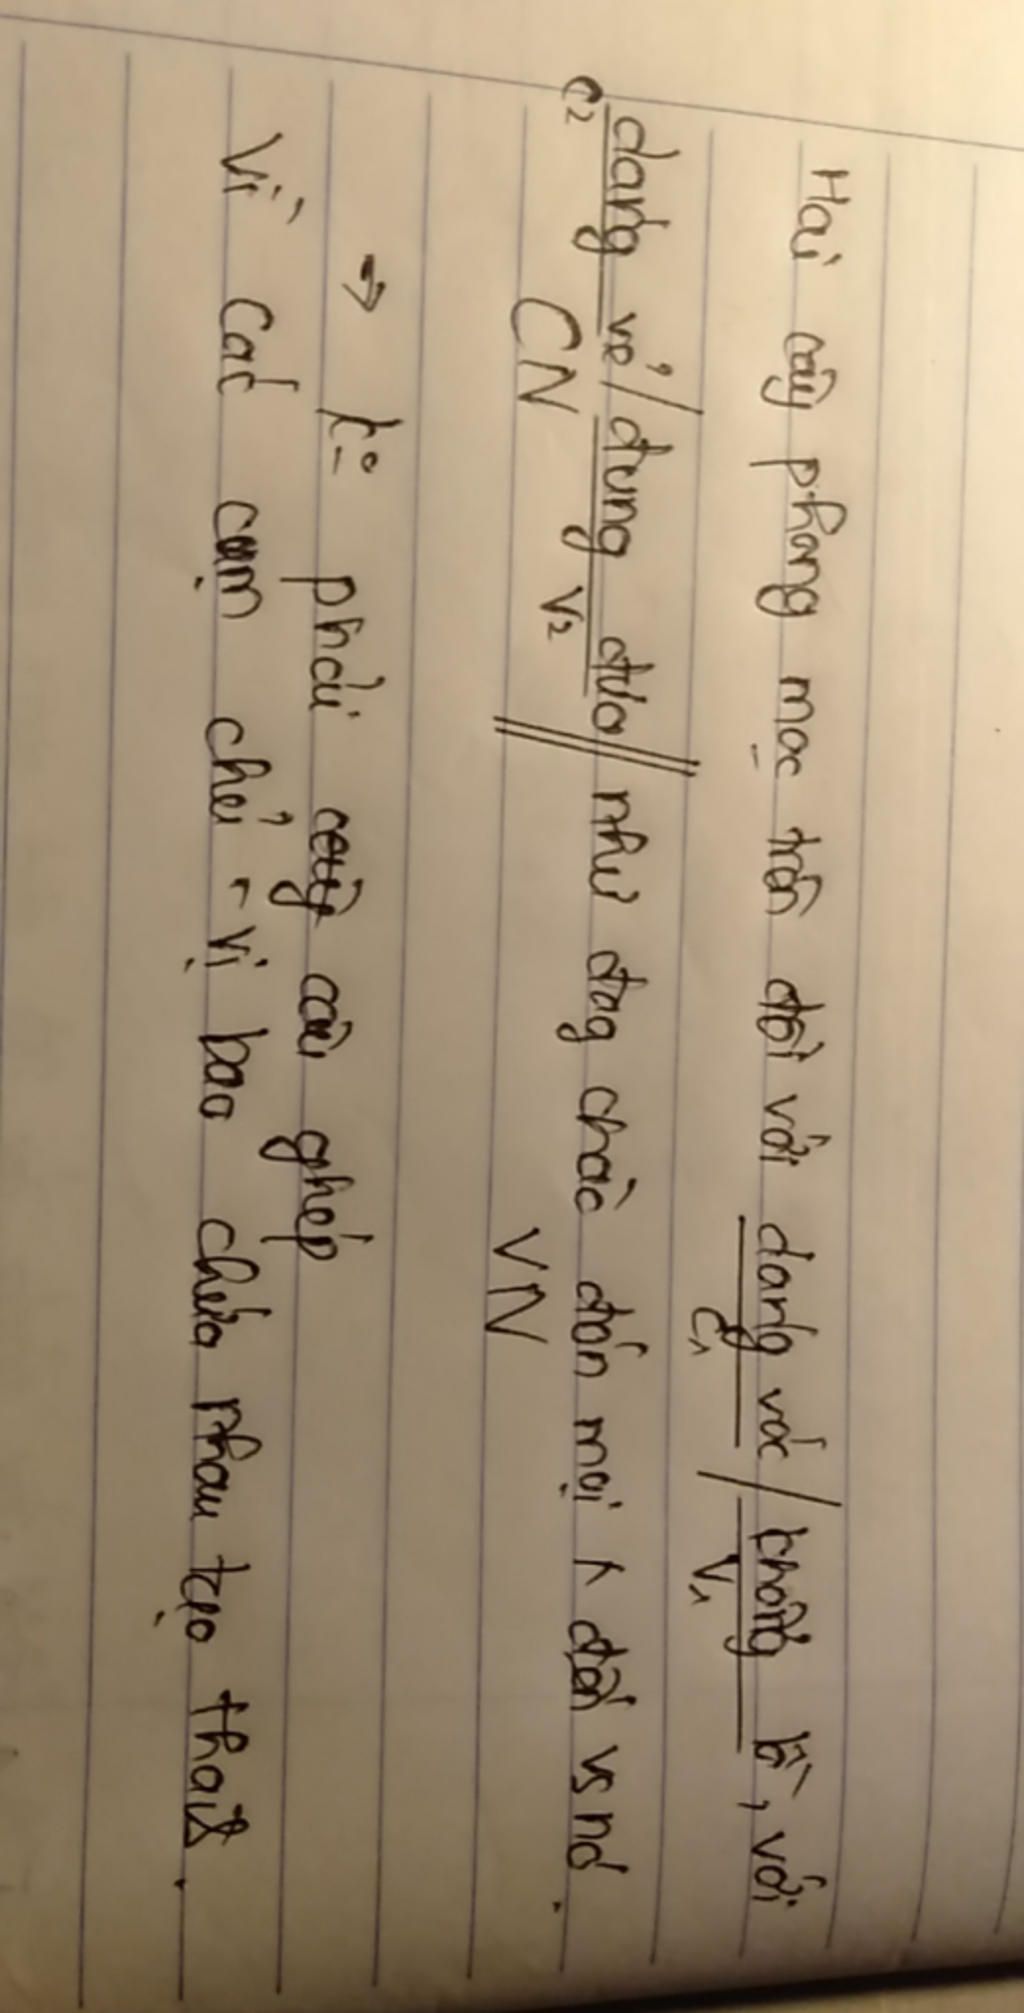 Hai cây phong mọc trên đồi với dáng vóc / khổng lồ, với
C1 V1
dáng vẻ / đung đưa // như đag chào đón mọi ng đến vs nó.
C2 V2
CN VN
→ k° phải câu ghép
Vì các cụm chủ - vị bao chứa nhau tạo thành.